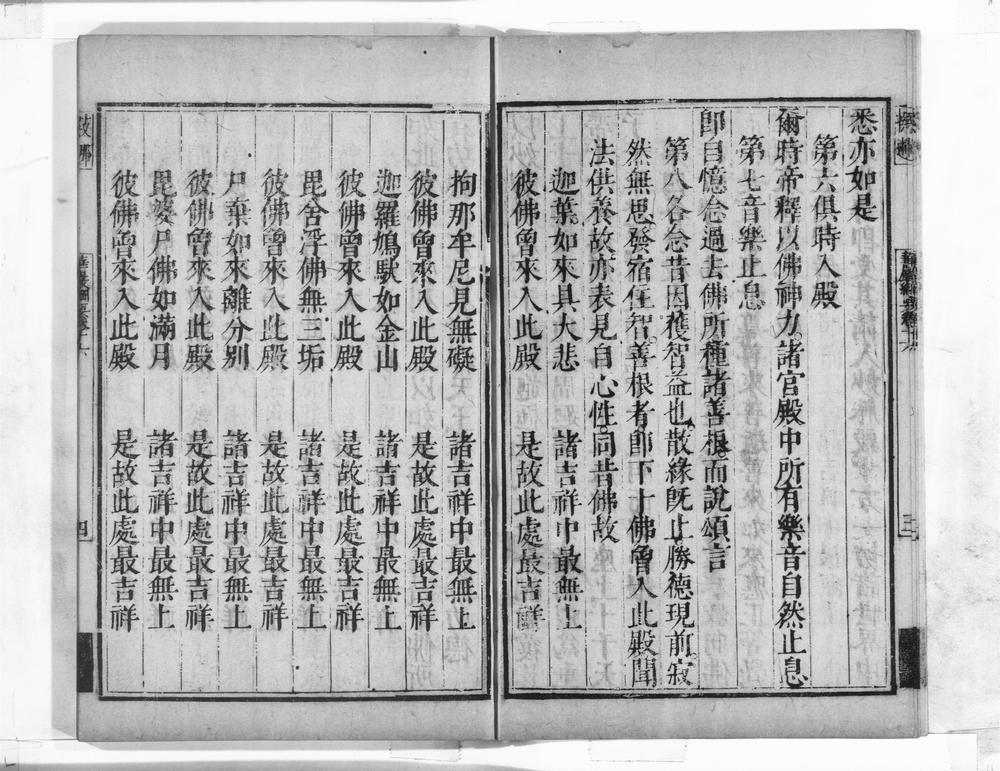 悉亦如是
第六俱時入殿
爾時帝釋以佛神力諸宮殿中所有樂音自然止息
第七音樂止息
即自憶念過去佛所種諸善根而說頌言
第八各念昔因獲智益也散緣旣止勝德現前寂
然無思發宿住智善根者即下十佛曾入此殿聞
法供養故亦表見自心性同昔佛故
迦葉如來具大悲　諸吉祥中最無上
彼佛曾來入此殿　是故此處最吉祥
拘那牟尼見無礙　諸吉祥中最無上
彼佛曾來入此殿　是故此處最吉祥
迦羅鳩馱如金山　諸吉祥中最無上
彼佛曾來入此殿　是故此處最吉祥
毘舍浮佛無三垢　諸吉祥中最無上
彼佛曾來入此殿　是故此處最吉祥
尸棄如來離分別　諸吉祥中最無上
彼佛曾來入此殿　是故此處最吉祥
毘婆尸佛如滿月　諸吉祥中最無上
彼佛曾來入此殿　是故此處最吉祥
三
四